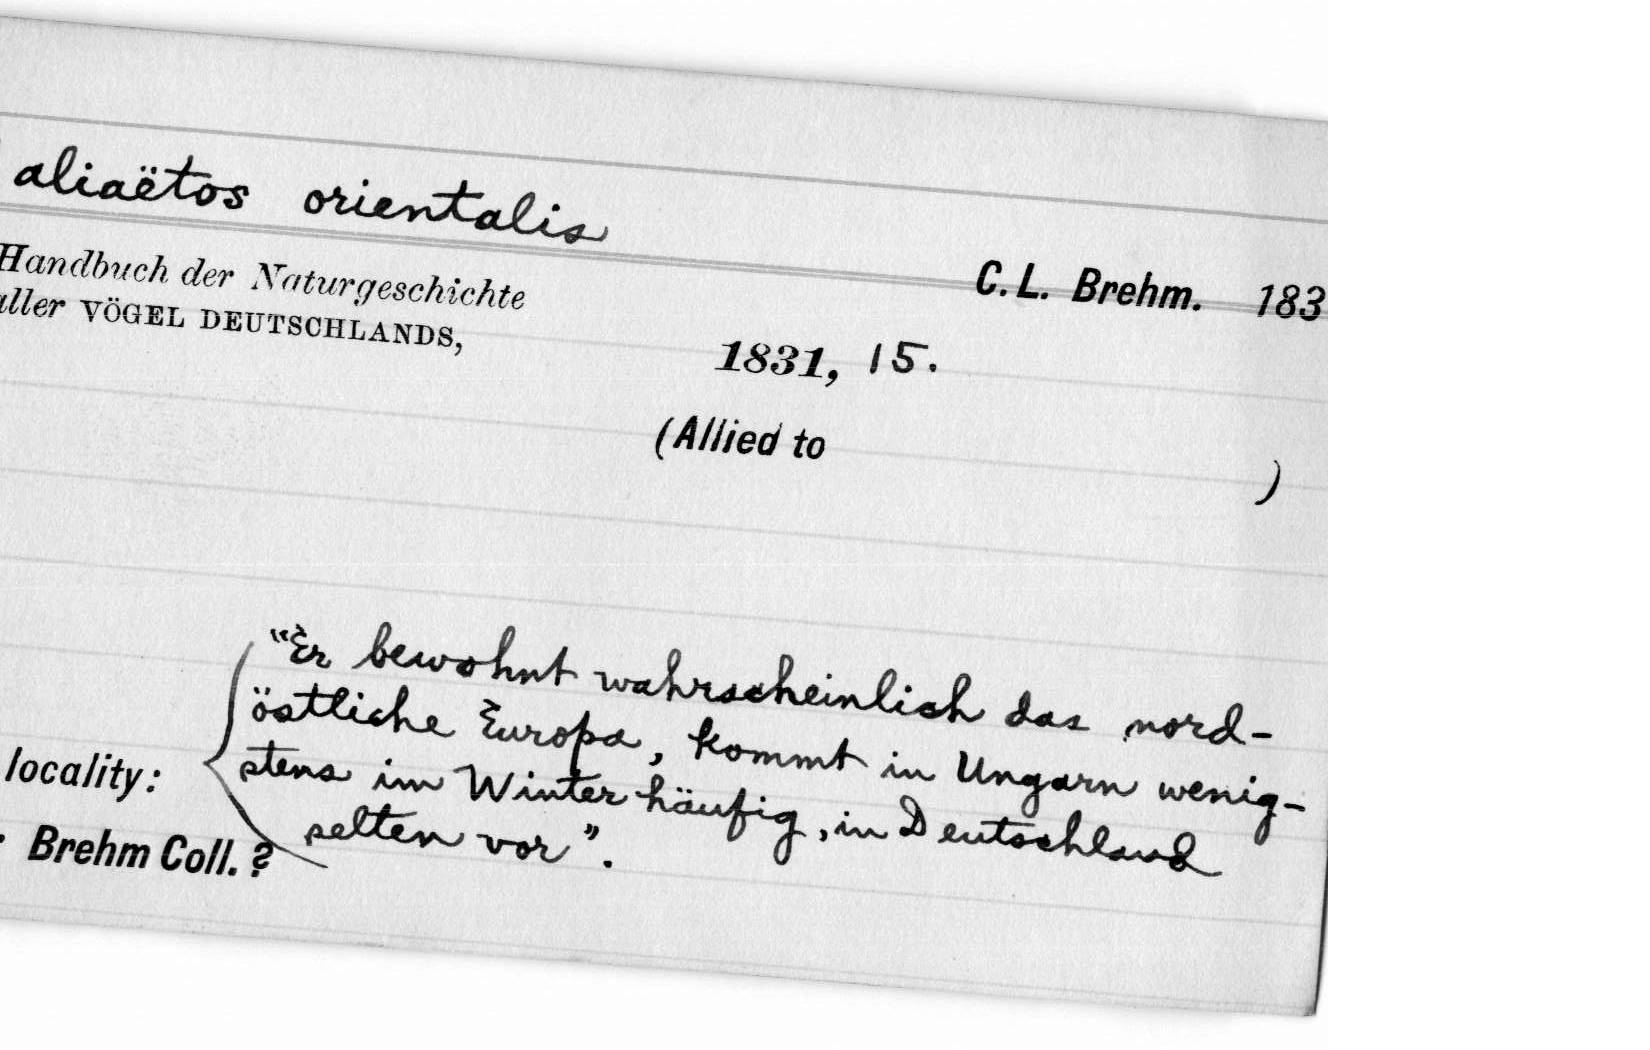 aliaëtos orientalis
C. L. Brehm. 183
Handbuch der Naturgeschichte
aller VÖGEL DEUTSCHLANDS,
1831, 15.
(Allied to )
"Er bewohnt wahrscheinlich das nord-
östliche Europa, kommt in Ungarn wenig-
stens im Winter häufig, in Deutschland
selten vor".
locality:
Brehm Coll. ?